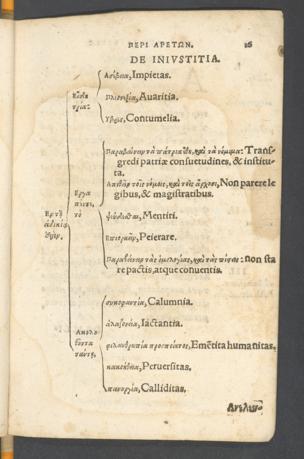 ΠΕΡΙ ΑΡΕΤΩΝ. 16
DE INIVSTITIA.
Ἀσέβεια, Impietas.
Πλεονεξία, Auaritia.
Ὕβρις, Contumelia.
Παραβαίνειν τὰ πάτρια ἔθη, καὶ τὰ νόμιμα: Trans-
gredi patriæ consuetudines, & institu-
ta.
τοῖς νόμοις, καὶ τοῖς ἄρχουσι, Non parere le
gibus, & magistratibus.
ψεύδεσθαι, Mentiri.
Ἐπιορκεῖν, Peierare.
Παραβαίνειν τὰς ὁμολογίας, καὶ τὰς πίστεις: non sta
re pactis, atque conuentis.
συκοφαντία, Calumnia.
ἀλαζονεία, Iactantia.
φιλανθρωπία προσποίητος, Emẽtita humanitas,
κακοήθεια, Peruersitas.
πανουργία, Calliditas.
Ἔργα
τὸ
Ἀκολου
θοῦντα
ταύτῃ,